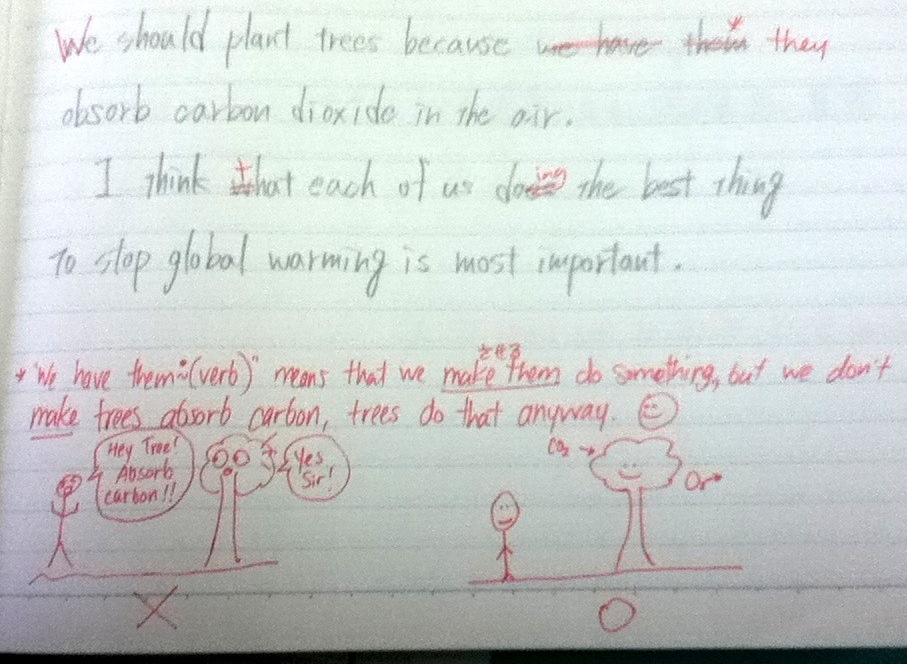 We should plant trees because we have them* they
absorb carbon dioxide in the air.
I think that each of us doing the best thing
to stop global warming is most important.
させる
* "We have them~(verb)" means that we make them do something, but we don't
make trees absorb carbon, trees do that anyway.
Hey Tree!
Absorb
carbon!!
Yes
Sir!
CO₂
O₂